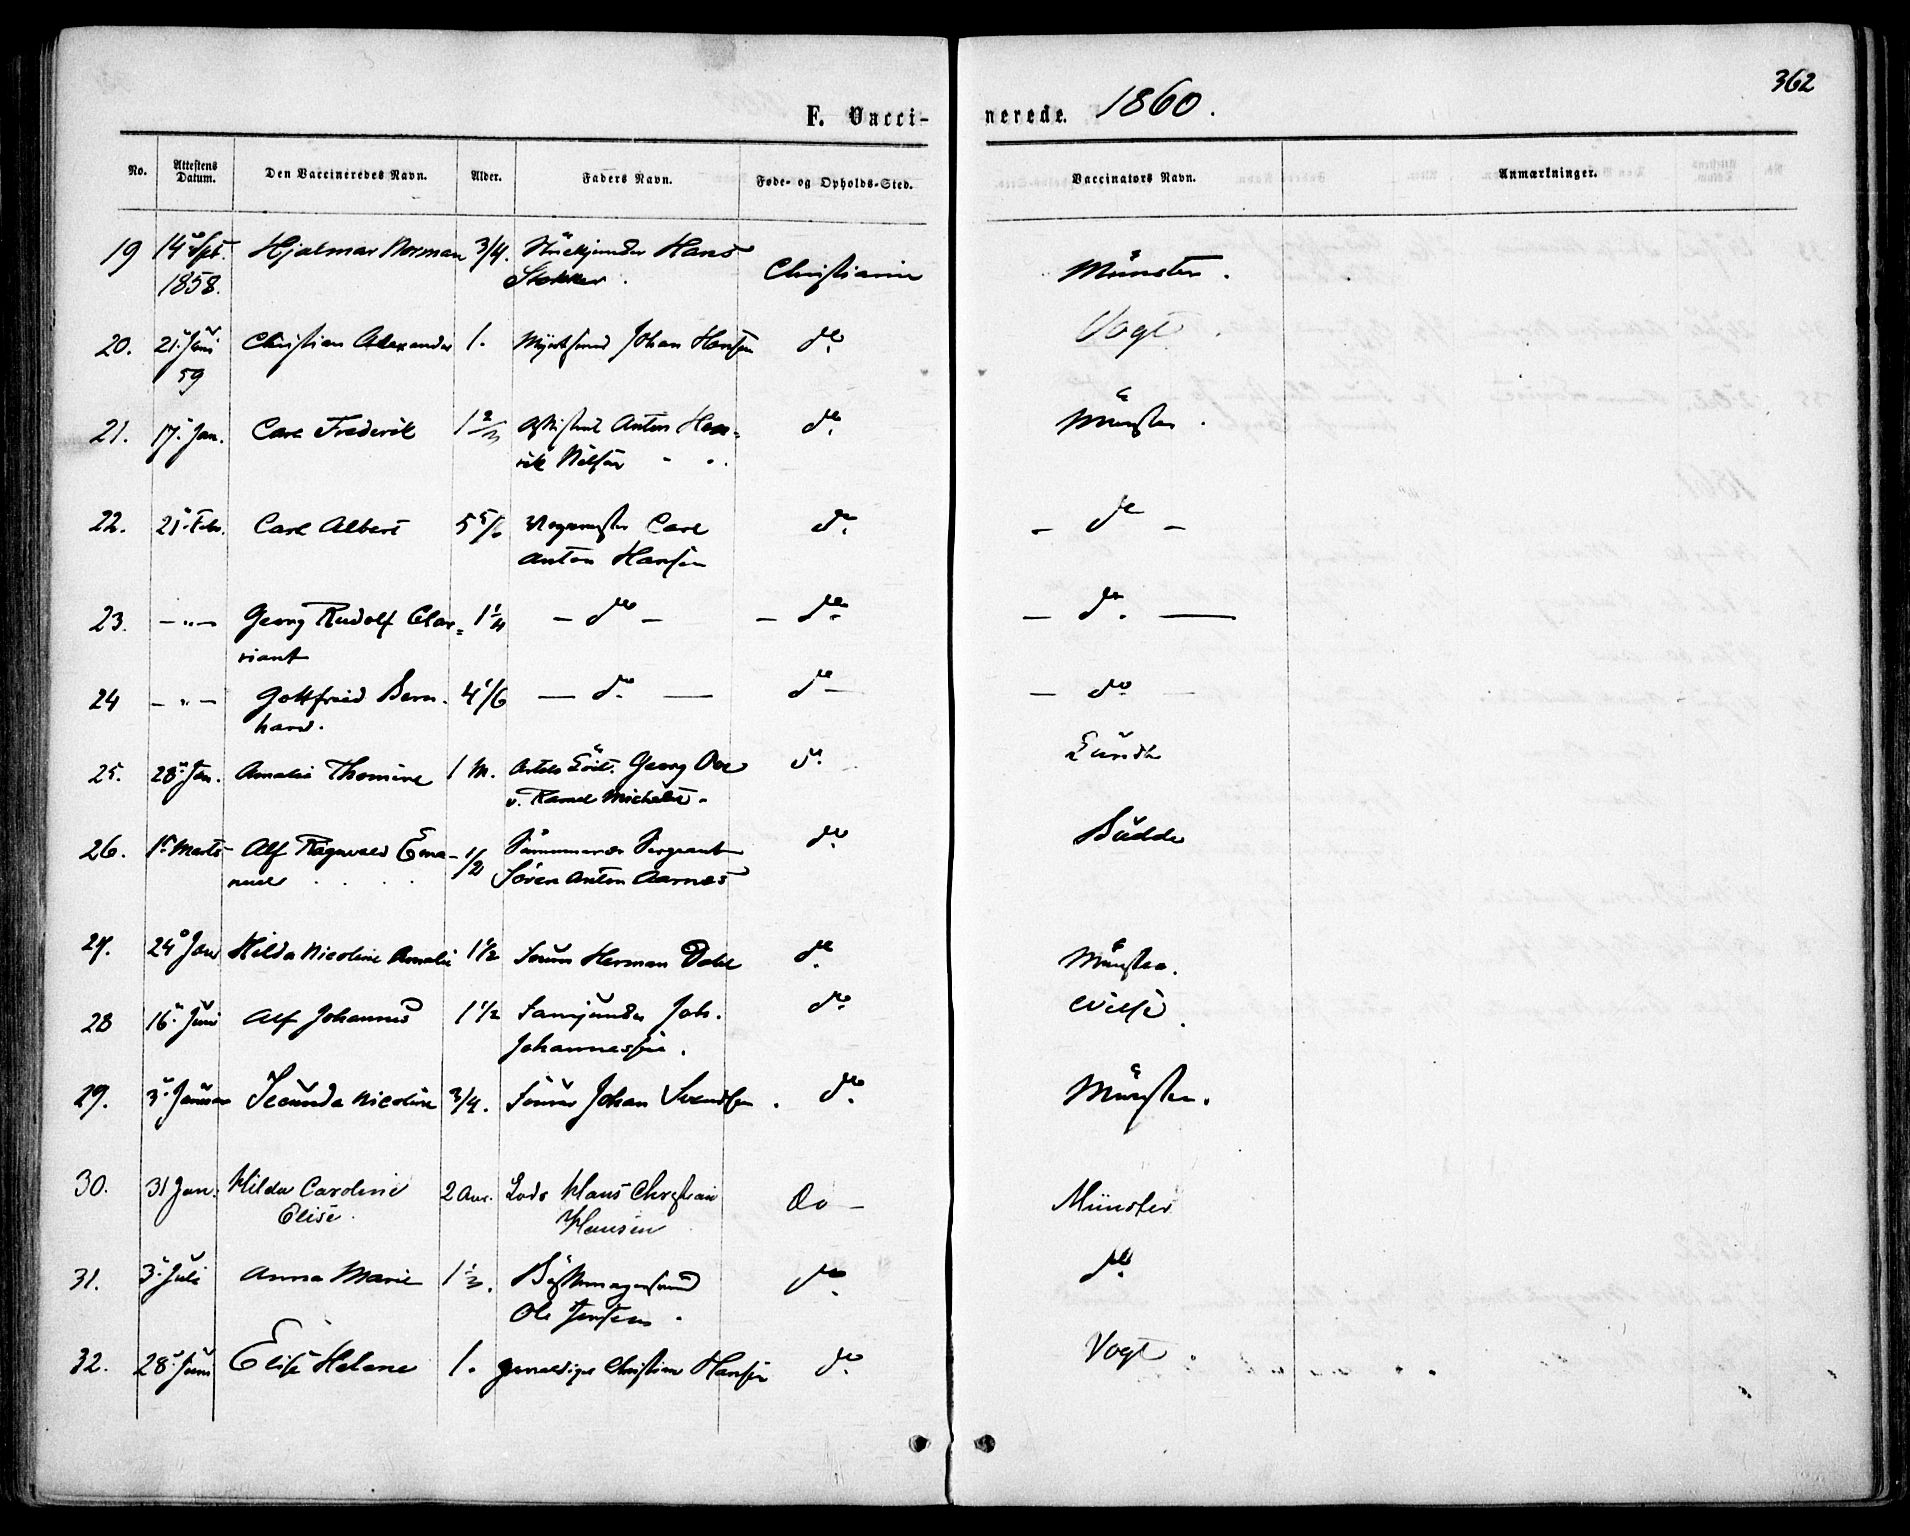 362
F. Vacci-nerede. 1860.
No. Attestens Datum. Den Vaccineredes Navn. Alder. Faders Navn. Føde- og Opholds-Sted. Vaccinators Navn. Anmærkninger.
19 14 Spt. Hjalmar Norman 3/4. Hans Christiania Münster.
1858.
20. 21 Juni Christian Alexander 1. Johan Hansen do Vogt
59
21. 17 Jan. Carl Frederik 1 2/3 Anton Hen= do Münster.
rik Nilsen
22. 21 Febr. Carl Albert 5 5/6 Carl do – do –
Anton Hansen
23. – " – Georg Rudolf Clar= 1 1/4 – do – – do – do. –
riant
24 – " – Gottfried Bern- 4 1/6 – do – do – – do –
hard.
25. 28 Jan. Amalie Thomine 1 M. Georg do Lundh
26. 1 Marts Alf Ragnvald Ema- 1/2 Sergeant do Budde
nuel Søren Anton Aarnes
27. 24 Jan Hilda Nicoline Amalie 1 1/2 Herman Dahl do Münster.
28 16 Juni Alf Johannes 1 1/2 Joh. do
Johannesen.
29. 3 Januar Secunda Nicoline 3/4. Johan Svendsen. do Münster.
30. 31 Jan. Hilda Caroline 2 Aar. Lods Hans Christian Do – Münster
Elise. Hansen
31. 3 Juli Anna Marie 1 1/3. do do
Ole Jensen.
32. 28 Juni Elise Helene 1. Christian Hansen do Vogt